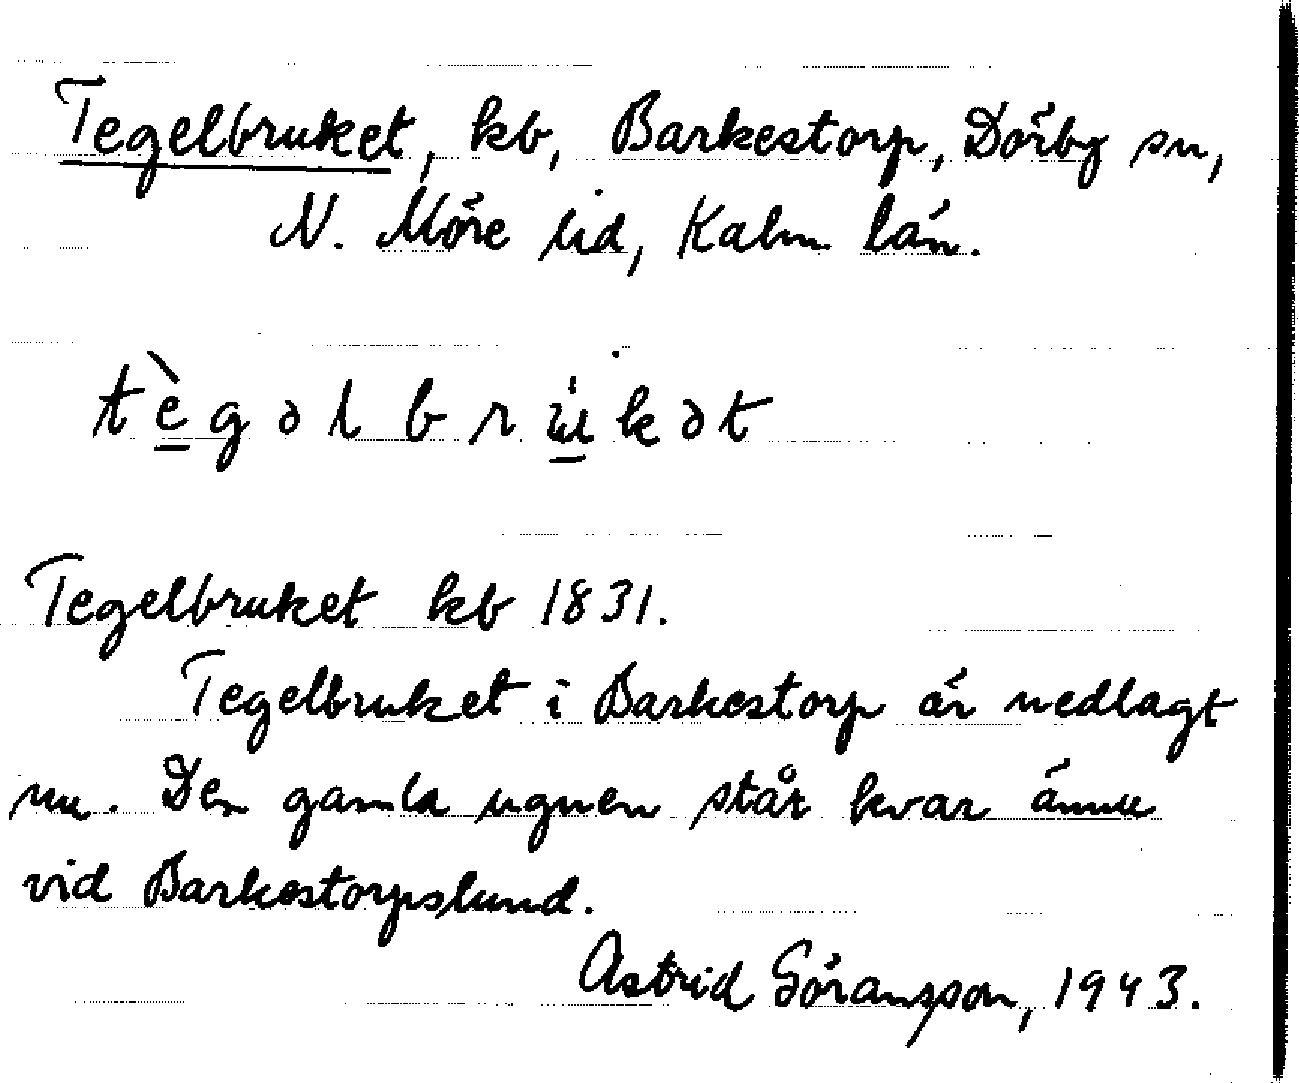 Tegelbruket, kb, Barkestorp, Dörby sn,
N. Möre hd, Kalm län.
tègəlbrùkət
Tegelbruket kb 1831.
Tegelbruket i Barkestorp är nedlagt
nu. Den gamla ugnen står kvar ännu
vid Barkestorpslund.
Astrid Göransson, 1943.